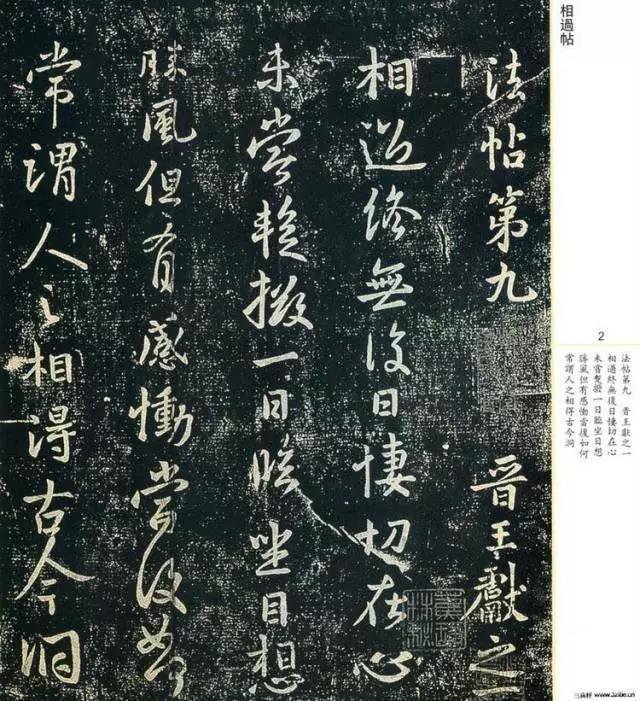 相過帖
法帖第九 晋王獻之一
相過終無復日悽切在心
未嘗暫掇一日臨坐目想
勝風但有感慟當復如何
常謂人之相得古今洞
2
法帖第九 晋王獻之一
相過終無復日悽切在心
未嘗暫掇一日臨坐目想
勝風但有感慟當復如何
常謂人之相得古今洞